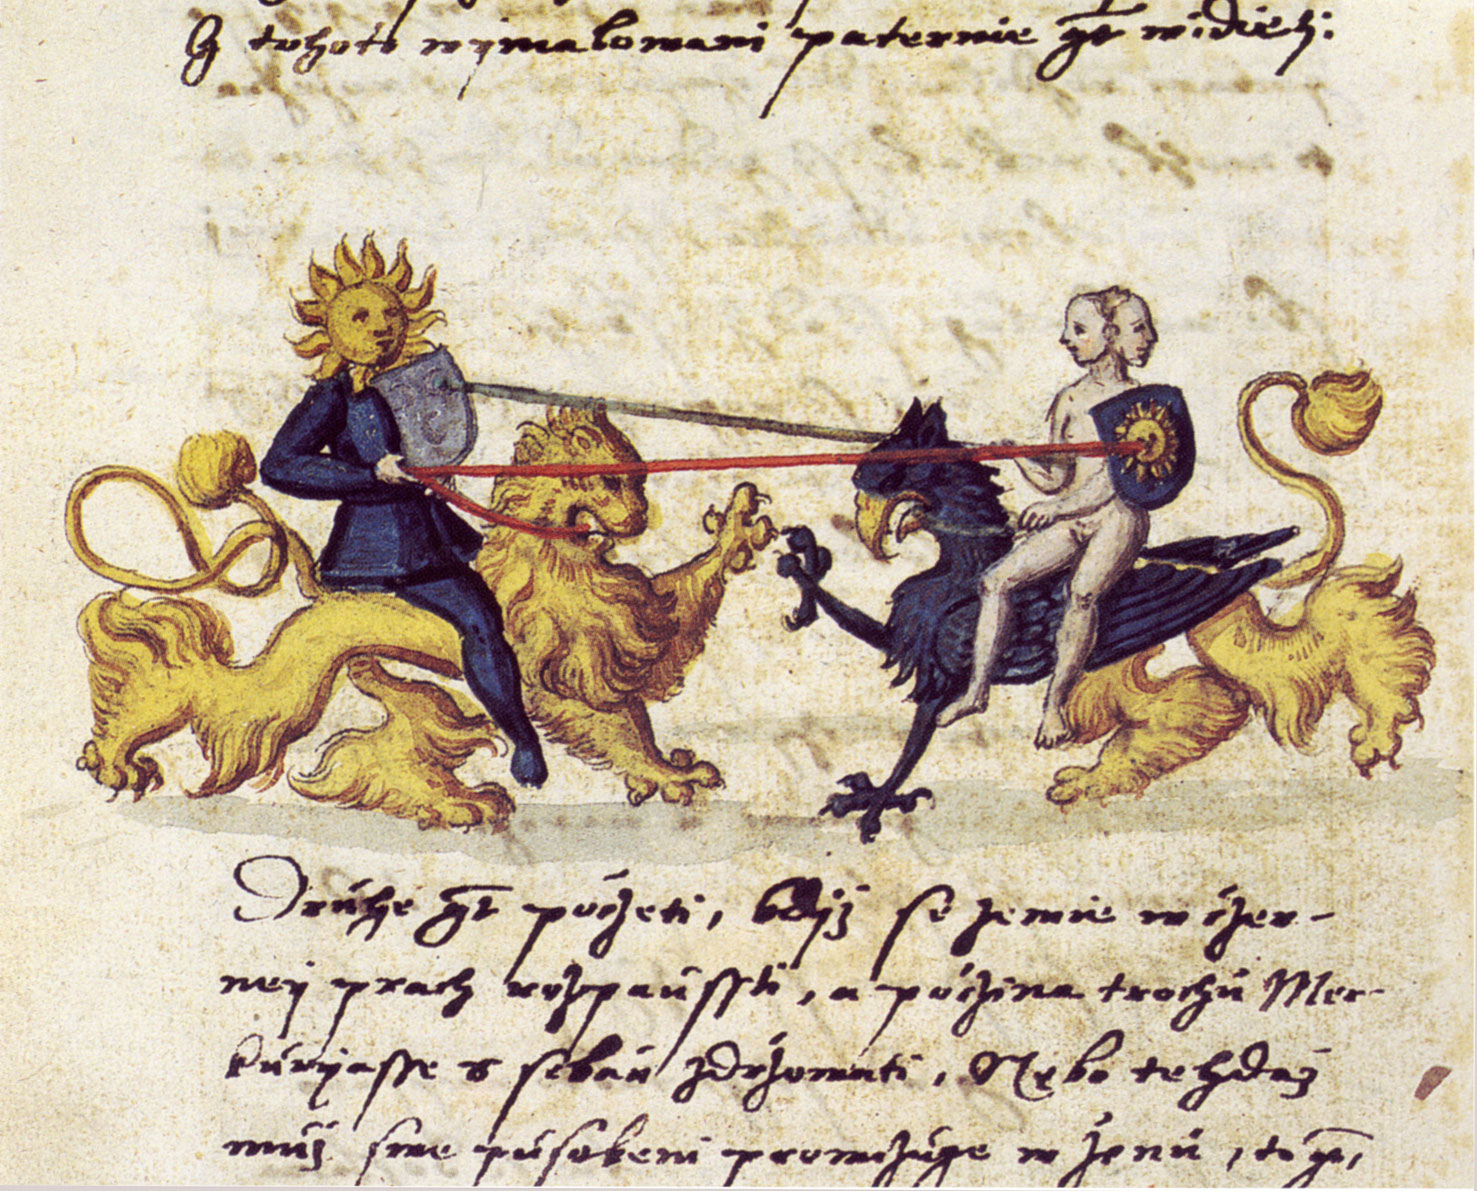 Z tohoto wymalowani paternie gt widieti:
Druhe gt počzeti, kdyz se zemie w čzer-
ney prach rozpaussti, a počzina trochu Mer-
kuryasse s sebau zdržowati, Nebo tehdaž
muž swe pusobeni prowozuge w ženu, to gt,